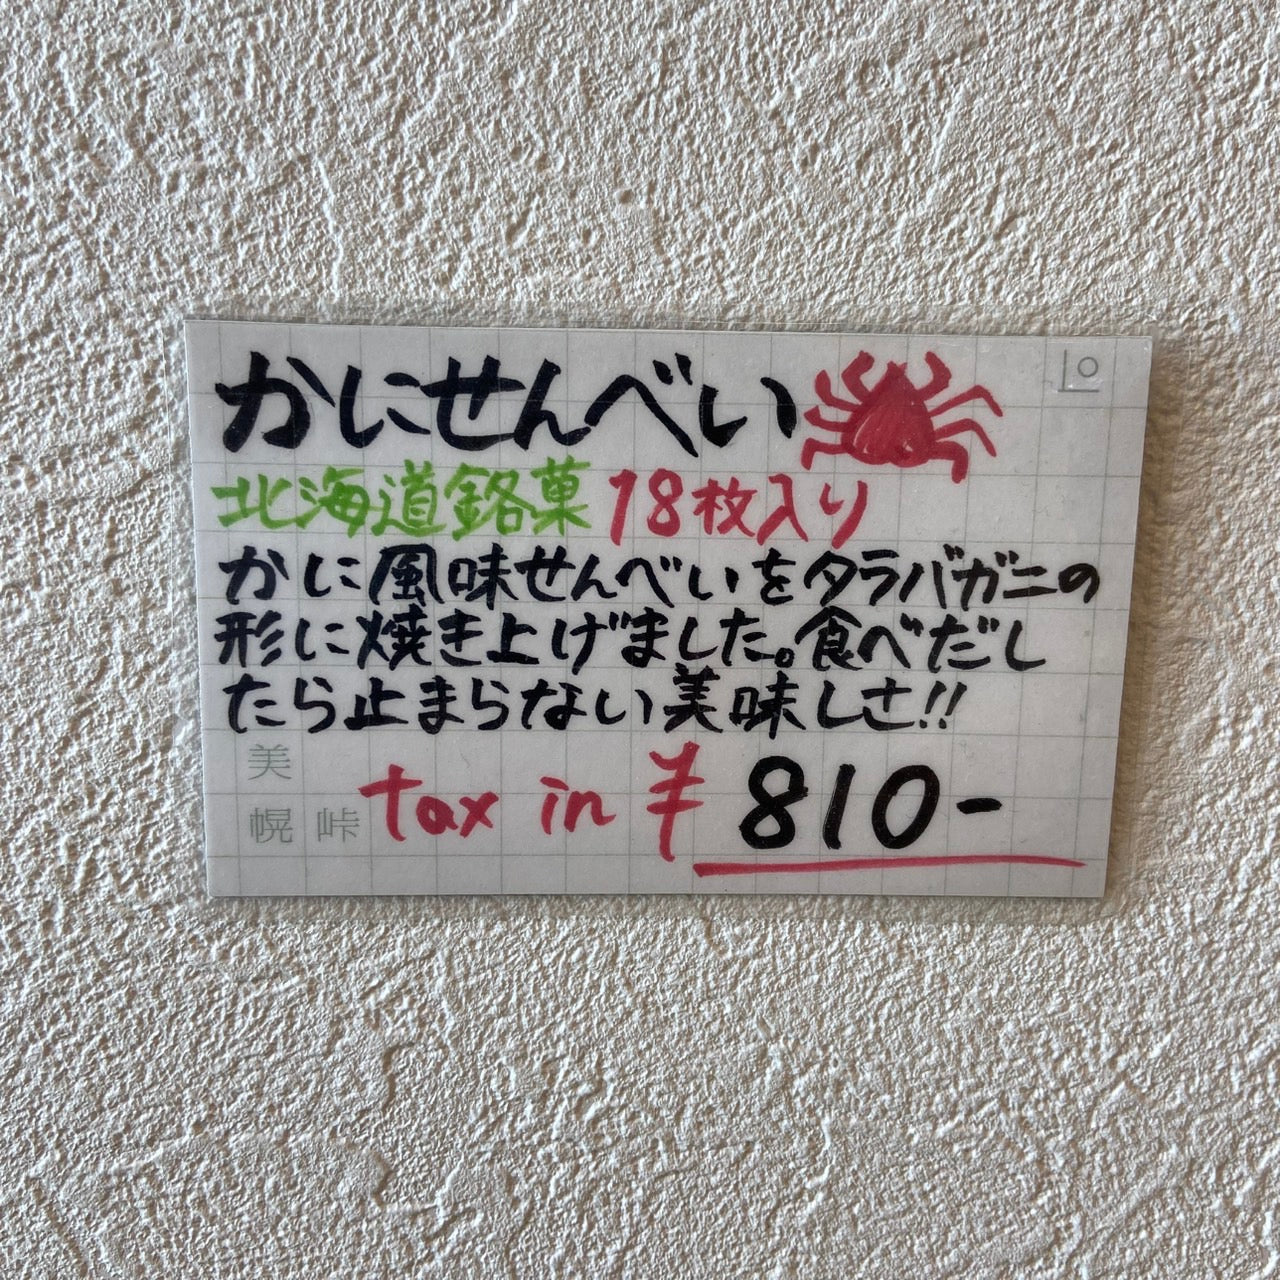 かにせんべい
北海道銘菓 18枚入り
かに風味せんべいをタラバガニの
形に焼き上げました。食べだし
たら止まらない美味しさ!!
美
幌 峠
tax in ¥810-